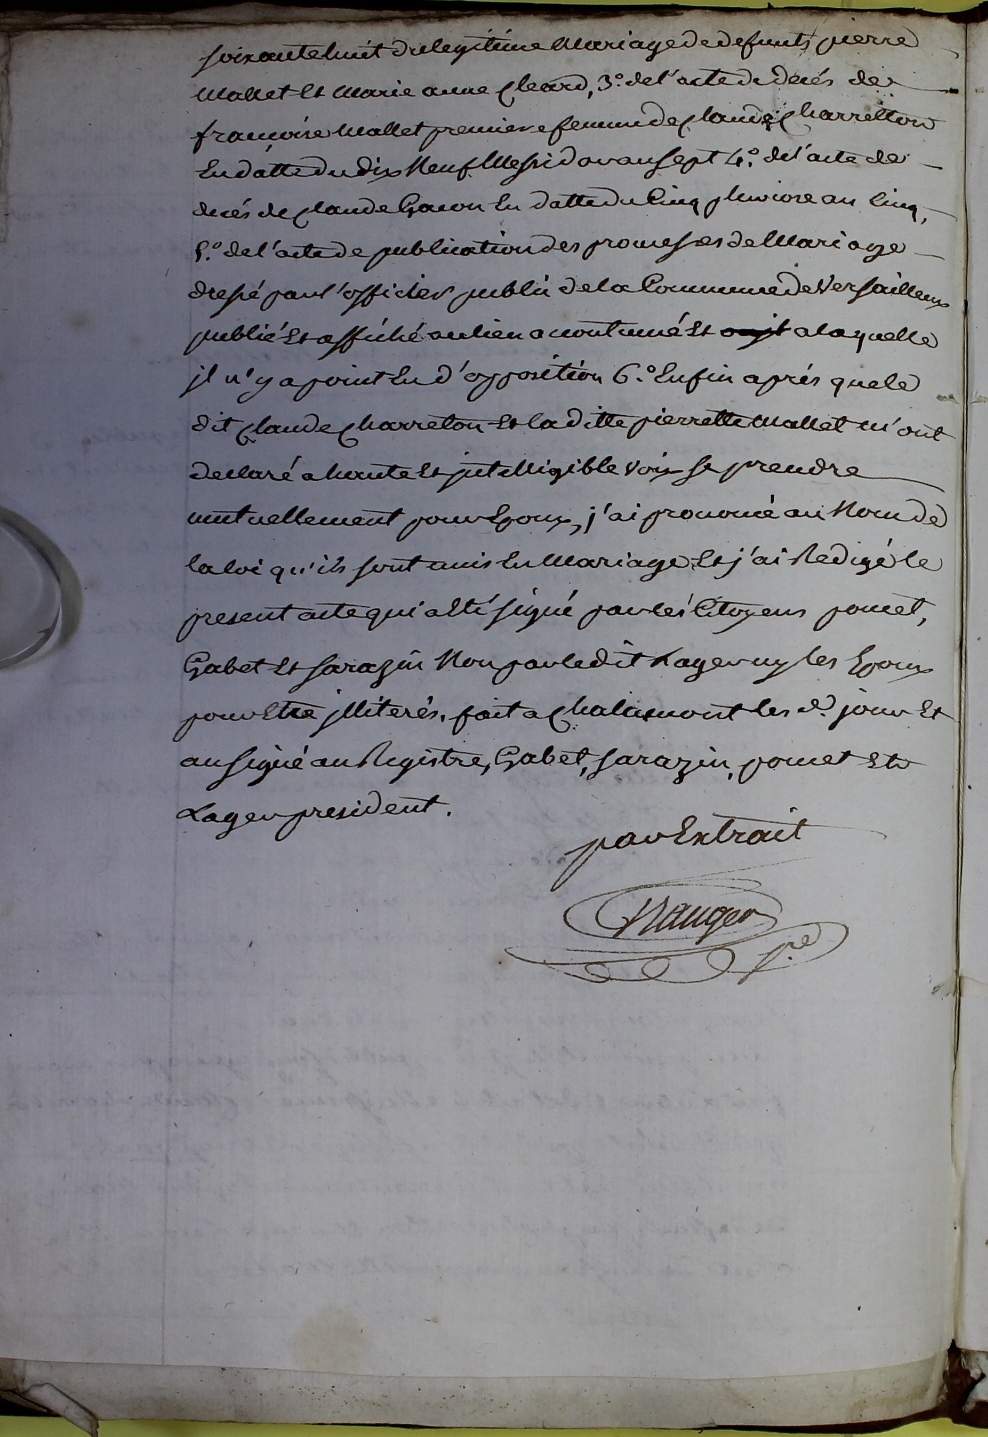 soixante huit du legitime Mariage de defunts pierre
Mallet Et Marie anne Cleard, 3.° de l'acte de decés de
françoise Mallet premiere femme de Claude Charretton
En datte du dix Neuf Messidor an sept 4.° de l'acte de
decés de Claude Gacon En datte du Cinq pluviore an Cinq,
5.° de l'acte de publication des promesses de Mariage
dressé par l'officier public de la Commune de Versailleux
publié Et affiché au lieu acoutumé Et a laquelle
jl n'y a point Eu d'opposition 6.° Enfin aprés que le
dit Claude Charreton Et la ditte pierrette Mallet m'ont
declaré a haute Et jntelligible voix se prendre
mutuellement pour Epoux, j'ai prononcé au Nom de
la loi qu'ils sont unis En Mariage Et j'ai Redigé le
present acte qui a Eté signé par les Citoyens pomet,
Gabet Et sarazin Non par le dit Lager ny les Epoux
pour Etre jlliterés, fait a Chalamont les d. jour Et
an signé au Registre, Gabet, sarazin, pomet Et
Lager president.
par Extrait